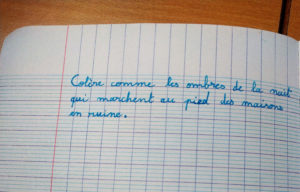 Colère comme les ombres de la nuit
qui marchent au pied des maisons
en ruine.